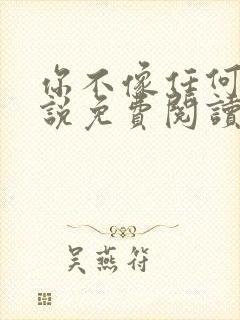 你不像任何
說免費閱讀
吳燕符